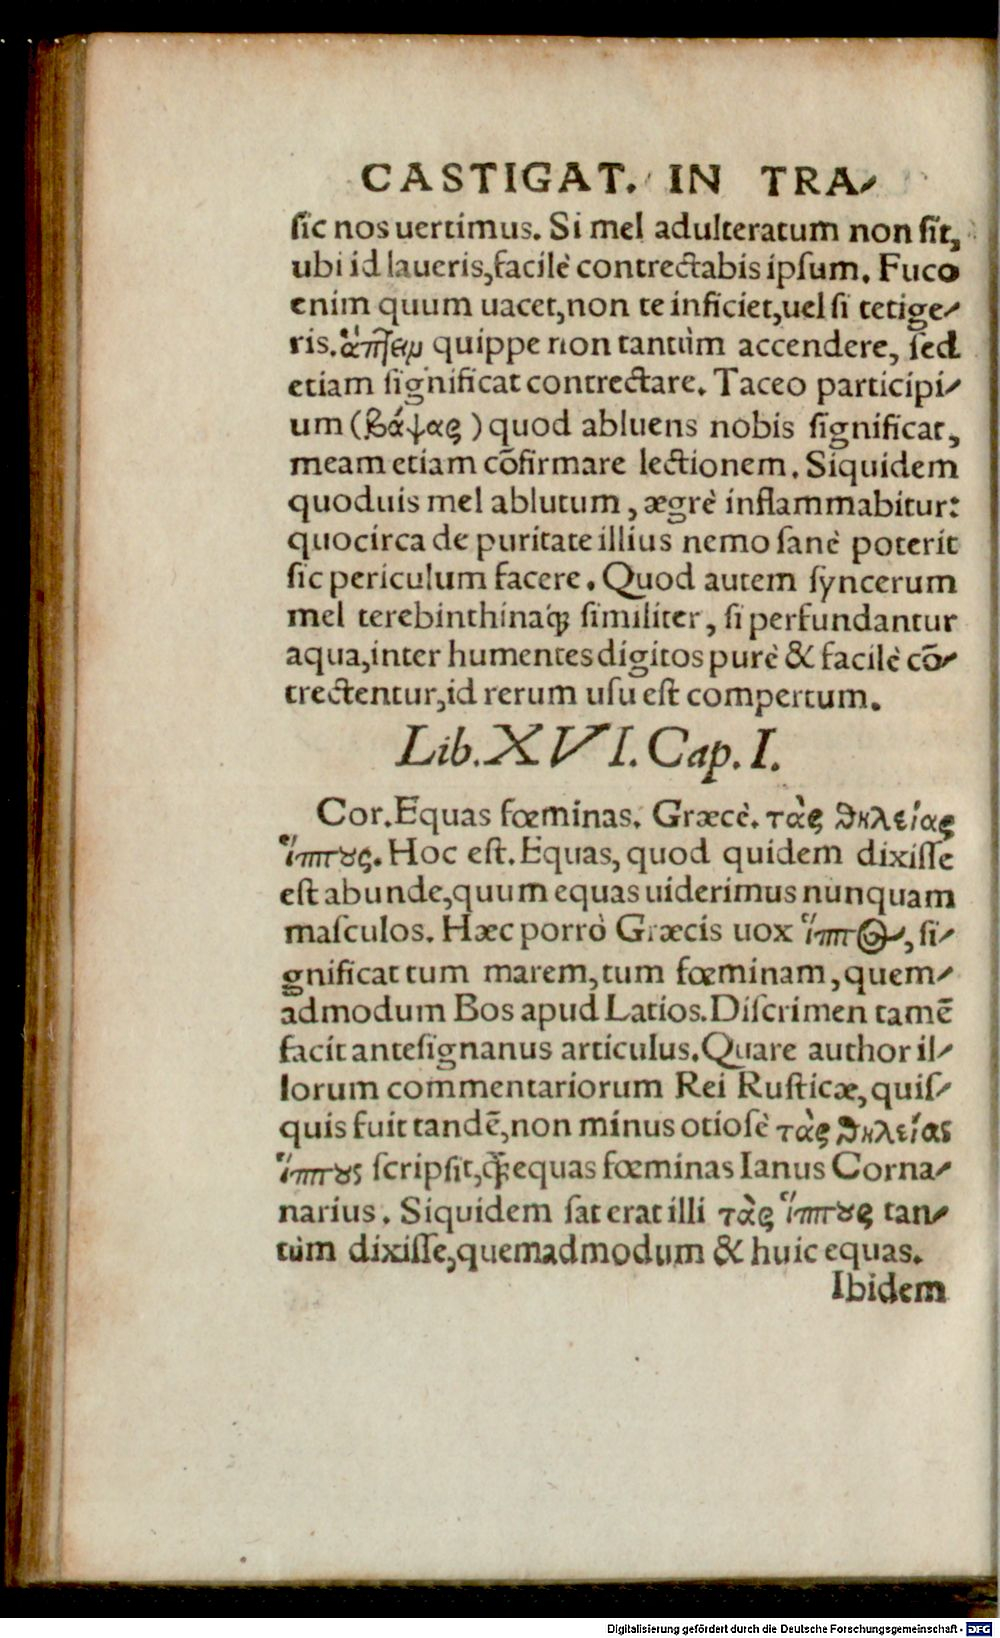 CASTIGAT. IN TRA-
ſic nos uertimus. Si mel adulteratum non ſit,
ubi id laueris, facilè contrectabis ipſum. Fuco
enim quum uacet, non te inficiet, uel ſi tetige-
ris. ἅπτειμ quippe non tantùm accendere, ſed
etiam ſignificat contrectare. Taceo participi-
um (βάψας) quod abluens nobis ſignificat,
meam etiam cōfirmare lectionem. Siquidem
quoduis mel ablutum, ægrè inflammabitur:
quocirca de puritate illius nemo ſanè poterit
ſic periculum facere. Quod autem ſyncerum
mel terebinthinaꝗ́; ſimiliter, ſi perfundantur
aqua, inter humentes digitos purè & facilè cō-
trectentur, id rerum uſu eſt compertum.
Lib. XVI. Cap. I.
Cor. Equas fœminas. Græcè. τὰς θηλείας
ἵππȣς. Hoc eſt. Equas, quod quidem dixiſſe
eſt abunde, quum equas uiderimus nunquam
maſculos. Hæc porrò Græcis uox ἵππος, ſi-
gnificat tum marem, tum fœminam, quem-
admodum Bos apud Latios. Diſcrimen tamē
facit anteſignanus articulus. Quare author il-
lorum commentariorum Rei Ruſticæ, quiſ-
quis fuit tandē, non minus otioſè τὰς θηλείας
ἵππȣς ſcripſit, ꝗ̃ equas fœminas Ianus Corna-
narius. Siquidem ſat erat illi τὰς ἵππȣς tan-
tùm dixiſſe, quemadmodum & huic equas.
Ibidem
Digitalisierung gefördert durch die Deutsche Forschungsgemeinschaft - DFG